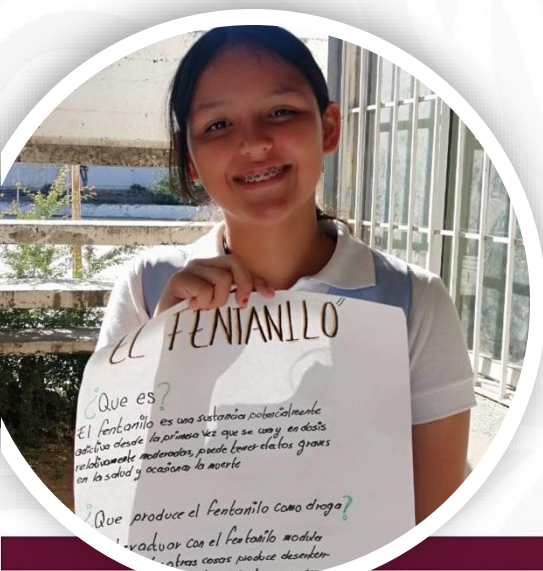 "EL FENTANILO"
¿Que es?
El fentanilo es una sustancia potencialmente
adictiva desde la primera vez que se usa y en dosis
relativamente moderadas, puede tener efectos graves
en la salud y ocasionar la muerte
¿Que produce el fentanilo como droga?
con el fentanilo
otras cosas produce